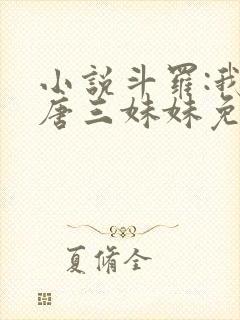 小説斗羅:我
唐三妹妹免
夏脩全